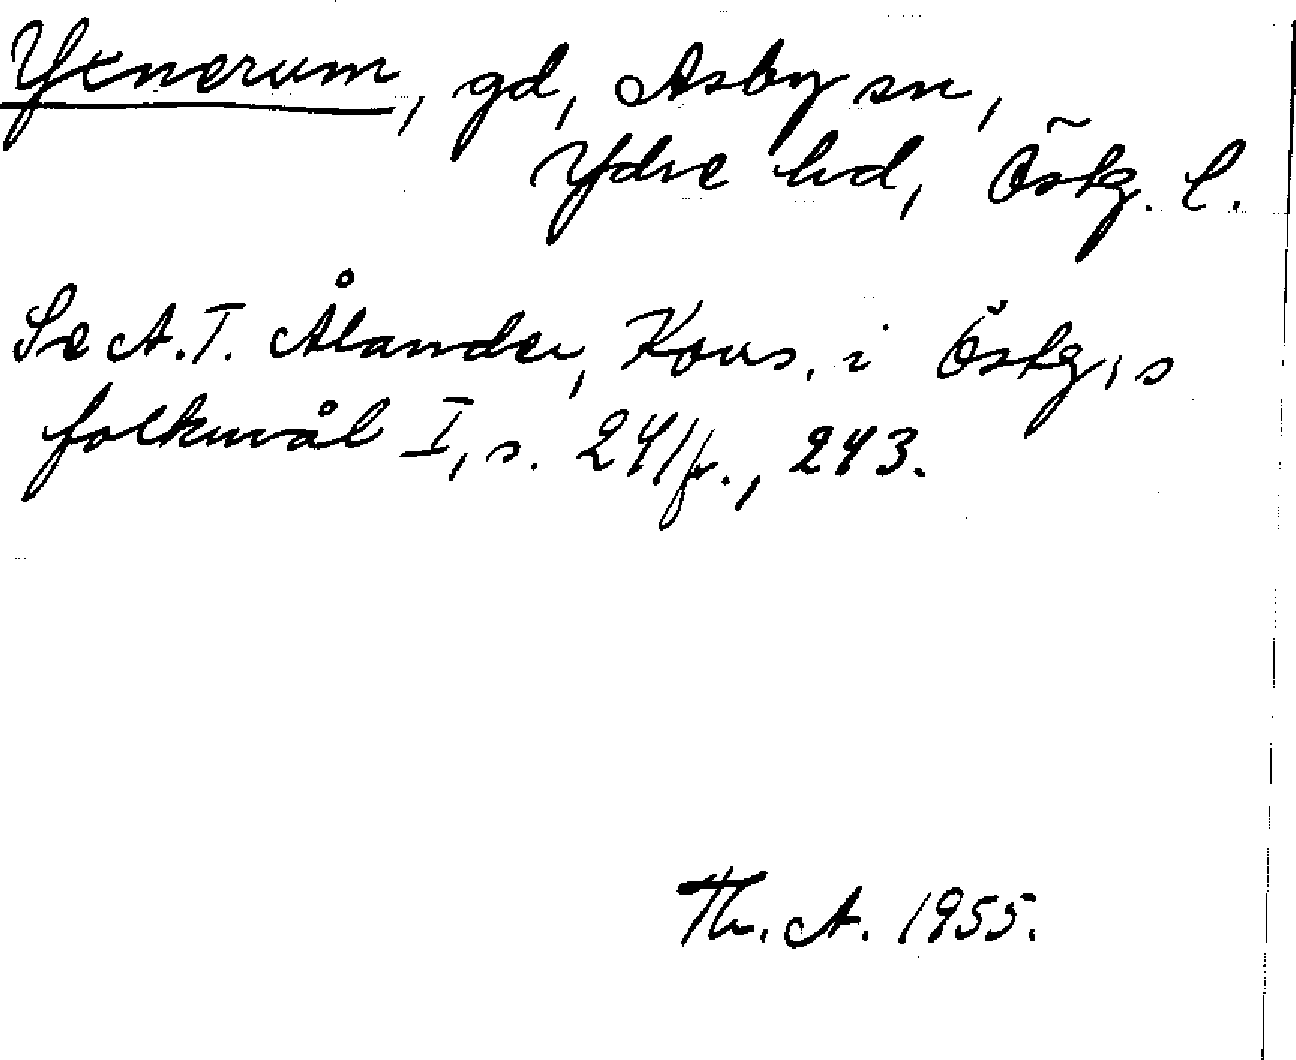 Yxnerum, gd, Asby sn,
Ydre hd, Östg. l.
Se A.T. Ålander, Kons. i Östg:s
folkmål I, s. 241fr., 243.
Th. A. 1955.